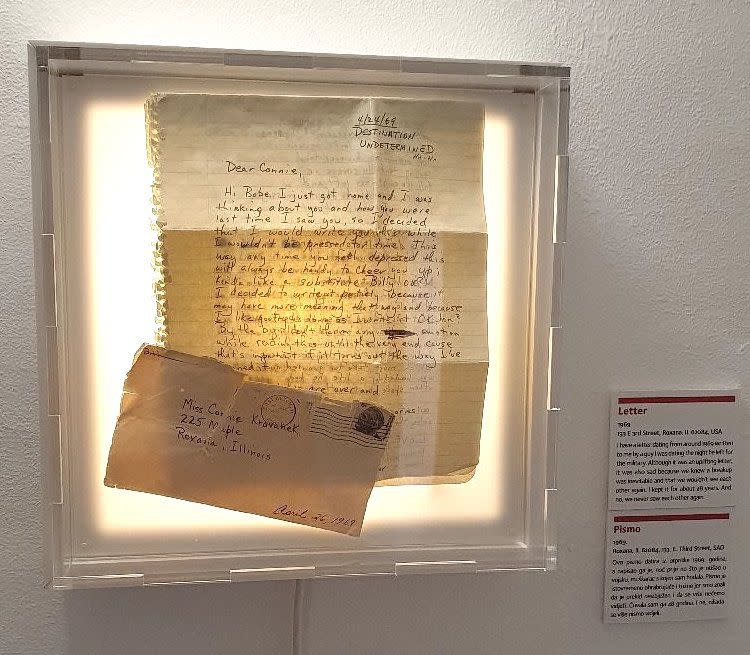 4/24/69
DESTINATION
UNDETERMINED
Dear Connie,
Hi Babe. I just got home and I was
thinking about you and how you were
last time I saw you, so I decided
that I would write you this while
I wouldn't be pressed for time. This
way any time you feel depressed this
will always be handy to cheer you up;
kinda like a substitute Billy, ok?
I decided to write it partly because it
may have more meaning that way and because
By the by, don't show any emotion
while reading this until the very end cause
that's important if it turns out the way I've
are over and
Miss Connie Kravanek
225 Maple
Roxana, Illinois
April 26, 1969
Letter
1969
133 E 3rd Street, Roxana, Il 62084, USA
I have a letter dating from around 1969 written
to me by a guy I was dating the night he left for
the military. Although it was an uplifting letter,
it was also sad because we knew a breakup
was inevitable and that we wouldn't see each
other again. I kept it for about 28 years. And
no, we never saw each other again.
Pismo
1969.
Roxana, Il. 62084, 133. E. Third Street, SAD
Ovo pismo datira iz otprilike 1969. godine,
a napisao ga je, noć prije no što je otišao u
vojsku, muškarac s kojim sam hodala. Pismo je
istovremeno ohrabrujuće i tužno jer smo znali
da je prekid neizbježan i da se više nećemo
vidjeti. Čuvala sam ga 28 godina. I ne, nikada
se više nismo vidjeli.